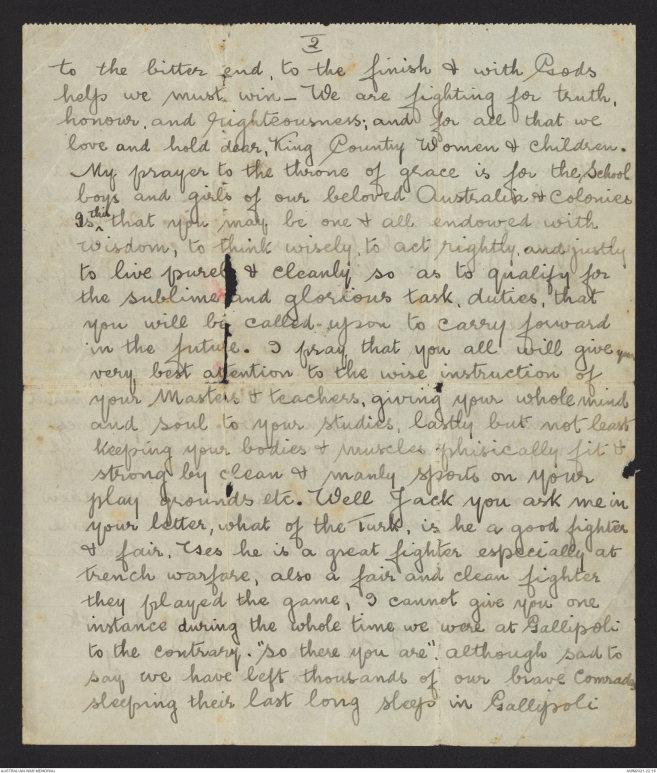 2
to the bitter end, to the finish & with Gods
help we must win - We are fighting for truth,
honour, and righteousness; and for all that we
love and hold dear, King Country Women & children.
My prayer to the throne of grace is for the, School
boys and girls of our beloved Australia & Colonies
Is this that you may be one & all endowed with
wisdom, to think wisely, to act rightly, and justly
to live purely & cleanly so as to qualify for
the sublime and glorious task, duties, that
you will be called upon to carry forward
in the future. I pray that you all will give your
very best attention to the wise instruction of
your Masters & teachers, giving your whole mind
and soul to your studies, lastly but not least
keeping your bodies & muscles phisically fit &
strong by clean & manly sports on your
play grounds etc. Well Jack you ask me in
your letter, what of the Turk, is he a good fighter
& fair. Yes he is a great fighter especially at
trench warfare, also a fair and clean fighter
they played the game, I cannot give you one
instance during the whole time we were at Gallipoli
to the contrary. "so there you are". although sad to
say we have left thousands of our brave Comrades
sleeping their last long sleep in Gallipoli
AUSTRALIAN WAR MEMORIAL